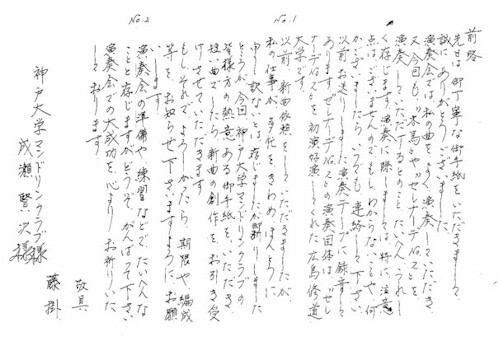 No. 1
前略
先日は御丁寧な御手紙をいただきまして
誠にありがとうございました。
演奏会では私の曲をよく演奏していただき
又今回も「木馬」や「セレナーデ」をと
演奏していただけるとのこと、たいへんうれし
く存じます。演奏に際しましては、特に注意
点はございませんが、もしわからないことや、何
かございましたら、いつでも連絡して下さい。
以前お送りしました演奏テープに録音して
ありますセレナーデの演奏団体は「セレ
ナーデ」を初演好演してくれた広島修道
大学です。
以前、新曲依頼をしていただきましたが、
私の仕事が多忙をきわめほんとうに
申し訳ないことは存じましたが断りしました
No. 2
ところが今回神戸大学マンドリンクラブの
皆様方の熱意ある御手紙をいただき、
短い曲でしたら、新曲の創作をお引き受
けさせていただきます。
もし、それでよろしかったら、期限や編成
等をお知らせ下さいますようにお願
演奏会の準備や、練習などでたいへんな
ことと存じますがどうぞがんばって下さい。
演奏会での大成功を心よりお祈りいた
しております。
敬具
藤掛
神戸大学マンドリンクラブ様
成瀬賢次様